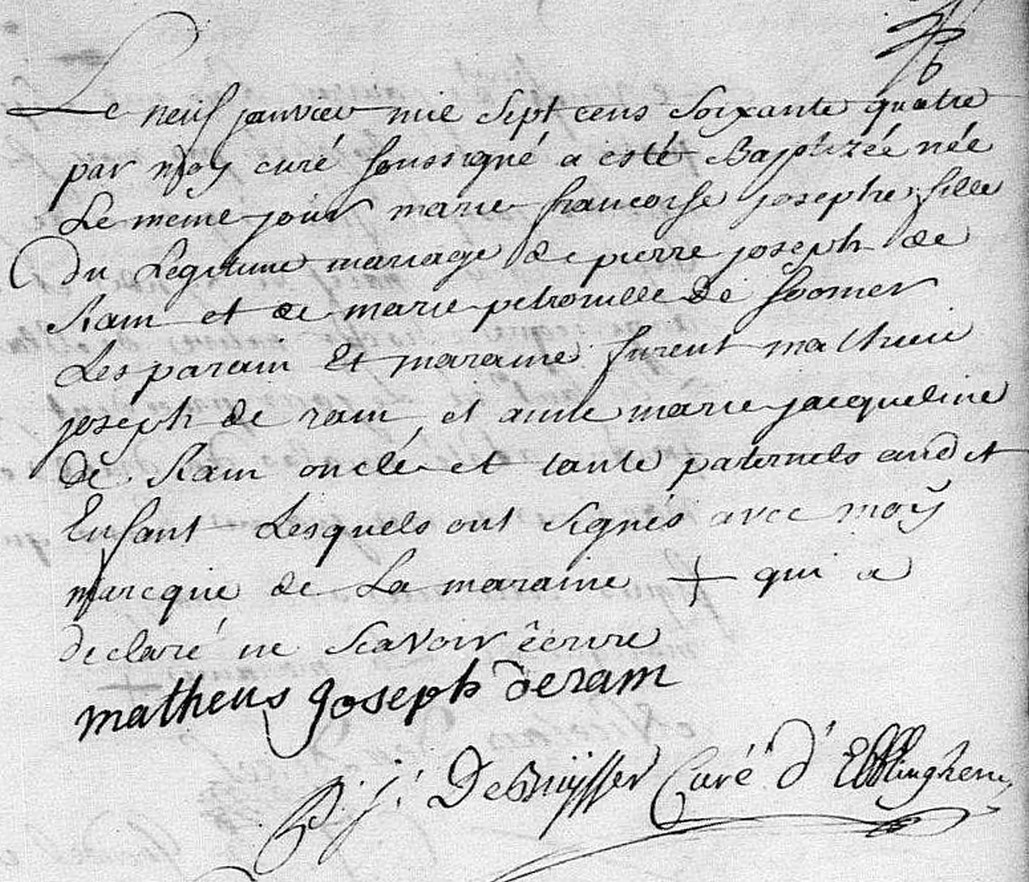 Le neuf janvier mil Sept cens Soixante quatre
par moy curé soussigné a esté Baptizéé néé
Le même jour marie francoise josephe fille
du Legitime mariage de pierre joseph de
Ram et de marie petronille De Soomer
Les parain Et maraine furent mathieu
joseph de ram, et anne marie jacqueline
De Ram onclé et tante paternels audit
Enfant Lesquels ont signés avec moÿ
marcque de La maraine + qui a
declaré ne scavoir écrire
matheus Joseph deram
P: j: DeBuÿsser Curé d'Ebblinghem